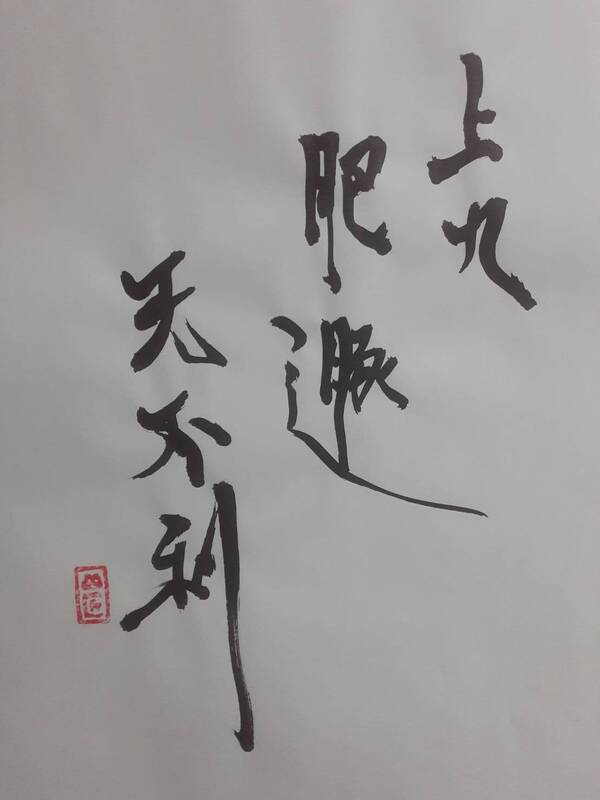 上九
肥遯
无不利